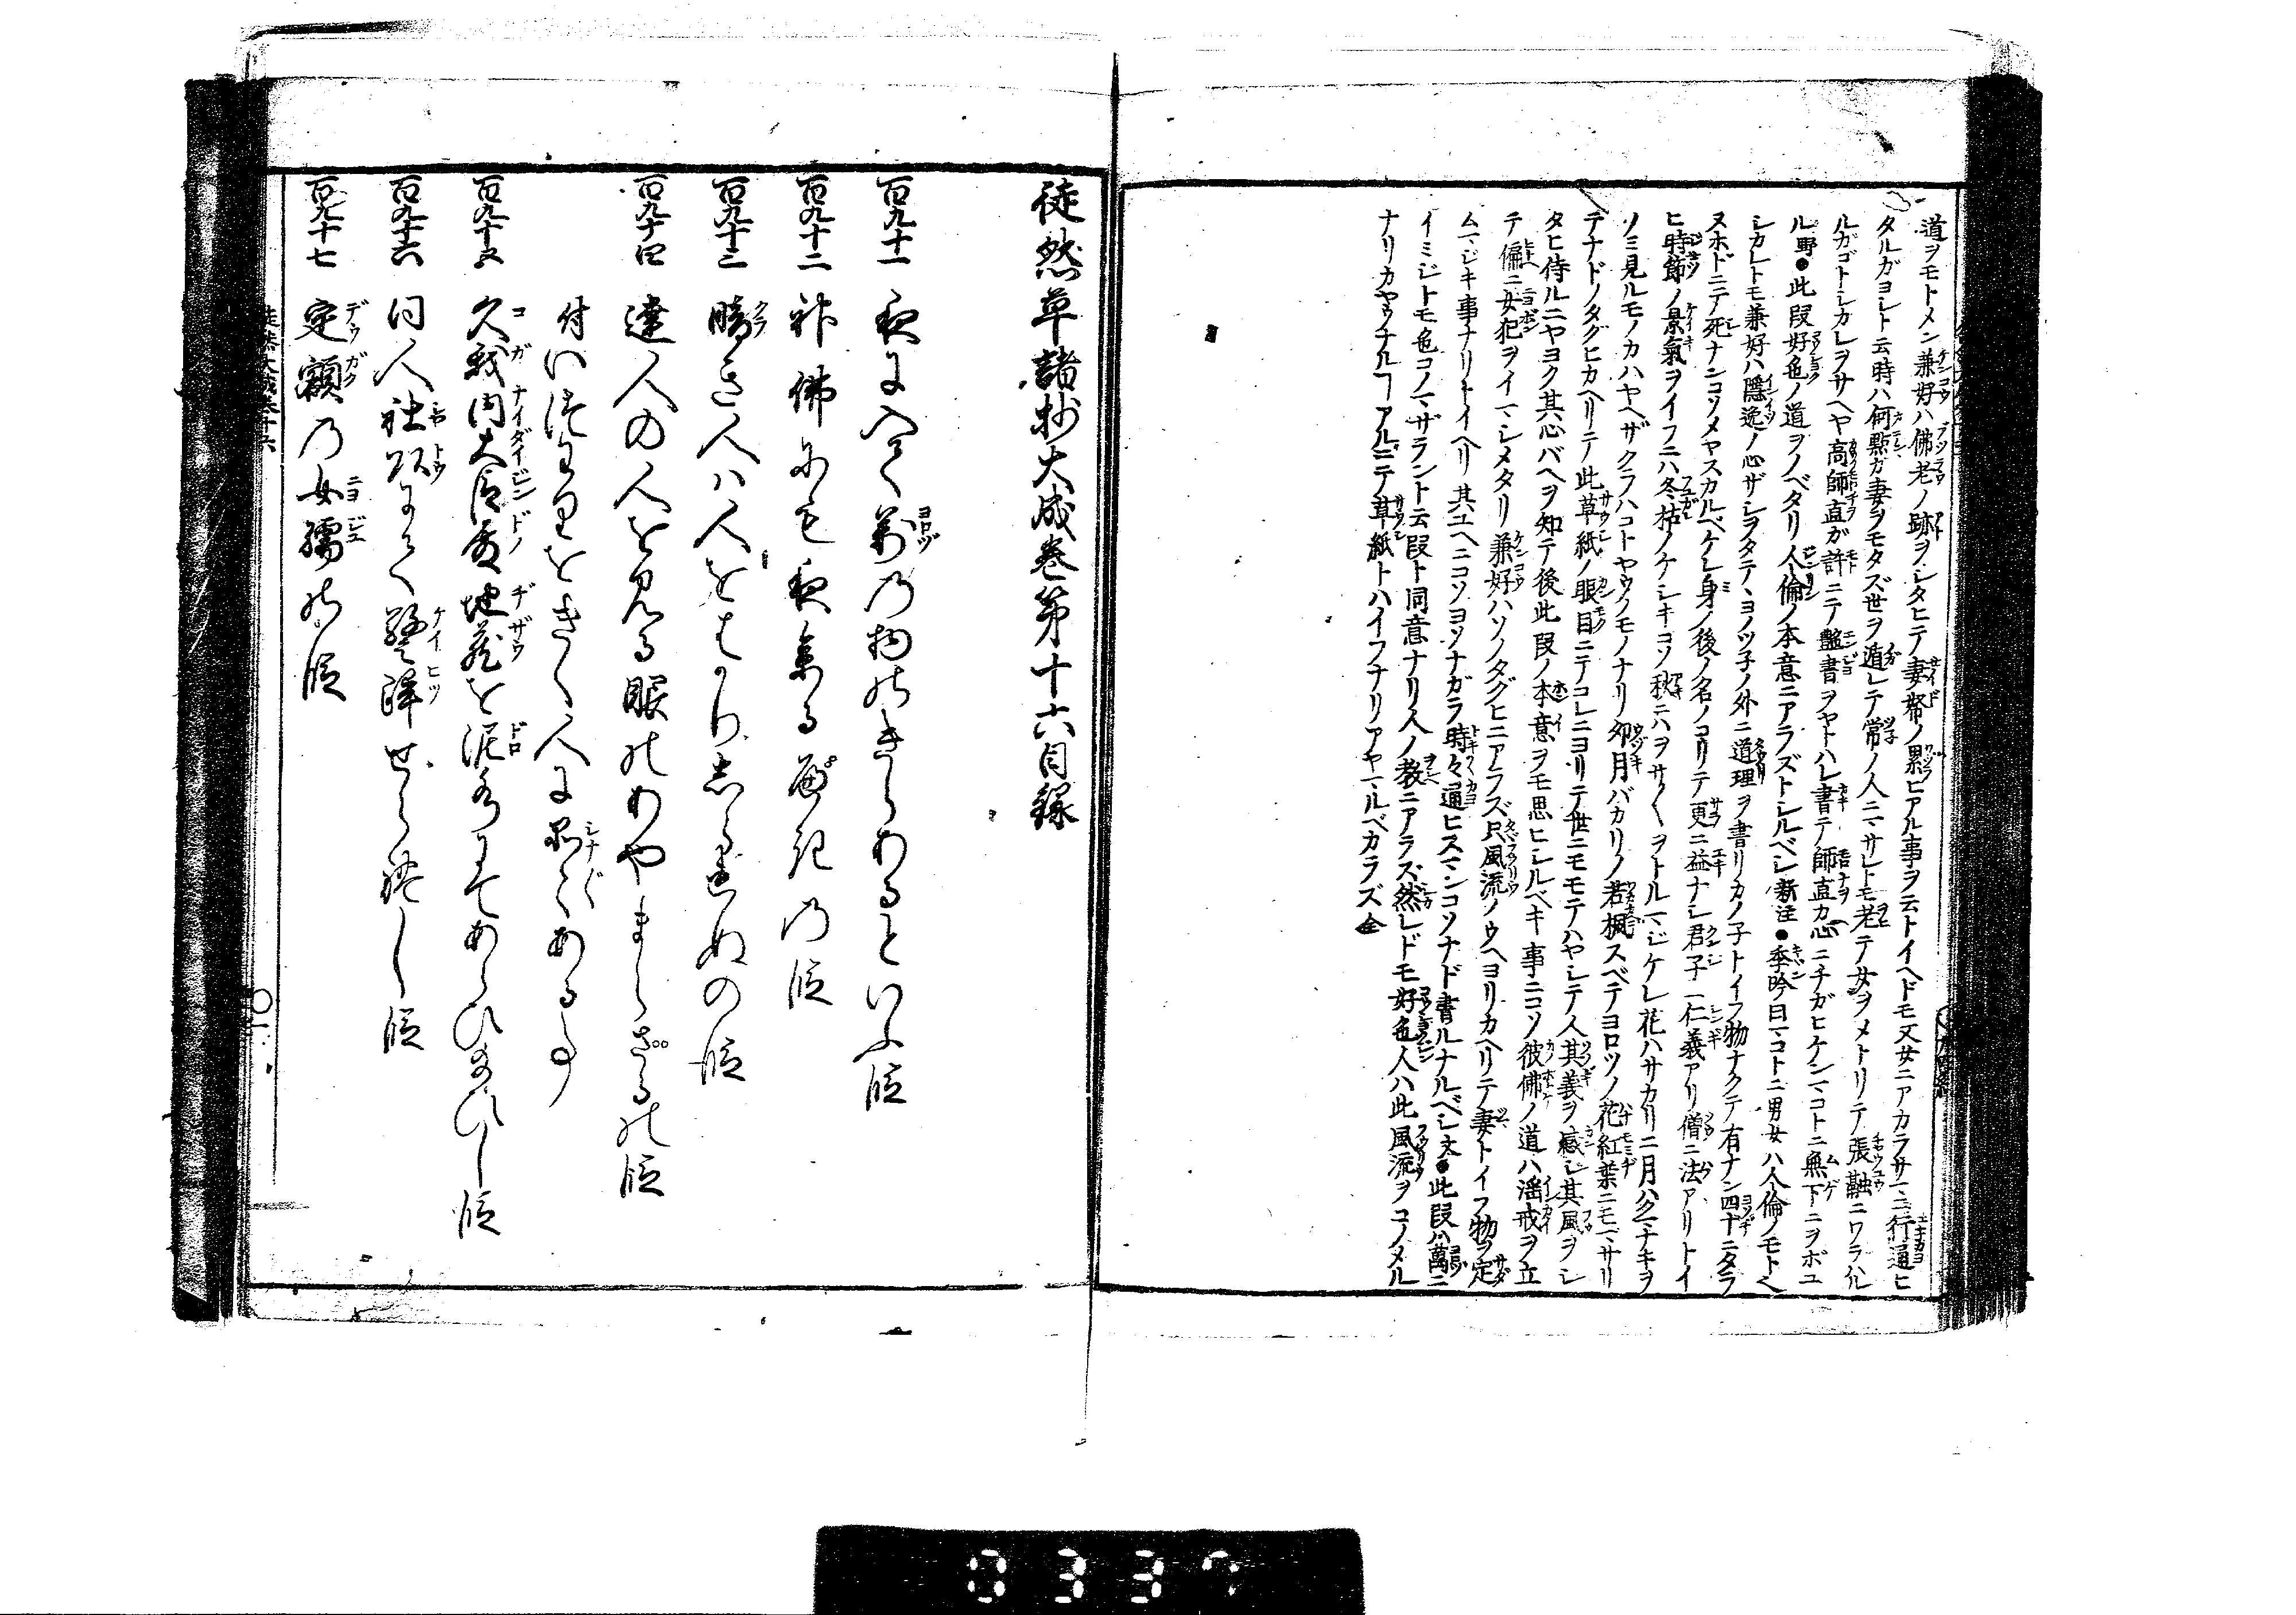 道ヲモトメン兼好ハ佛老ノ跡ヲシタヒテ妻帑ノ累ヒアル事ヲ云トイヘドモ又女ニアカラサマニ行通ヒ
タルガヨシト云時ハ何點ガ妻ヲモタズ世ヲ遁レテ常ノ人ニマサレトモ老テ女ヲメトリテ張融ニワラハル
ルガゴトシカレヲサヘヤ高師直ガ許ニテ艷書ヲヤトハレ書テ師直カ心ニチガヒケンマコトニ無下ニヲボユ
ル野●此段好色ノ道ヲノベタリ人倫ノ本意ニアラズトシルベシ新注●季吟曰マコトニ男女ハ人倫ノモトヘ
シカレトモ兼好ハ隱逸ノ心ザシヲタテヽヨノツ子ノ外ニ道理ヲ書リカノ子トイフ物ナクテ有ナン四十ニタラ
ヌホドニテ死ナンコソメヤスカルベケレ身ノ後ノ名ノコリテ更ニ益ナシ君子ニ仁義アリ僧ニ法アリトイ
ヒ時節ノ景氣ヲイフニハ冬枯ノケシキコソ秋ニハヲサ〱ヲトルマジケレ花ハサカリニ月ハクマナキヲ
ソミ見ルモノカハヤヘザクラハコトヤウノモノナリ卯月バカリノ若楓スベテヨロツノ花紅葉ニモマサリ
テナドノタグヒカヘリテ此草紙ノ眼目ニテコレニヨリテ世ニモモテハヤシテ人其義ヲ感シ其風ヲシ
タヒ侍ルニヤヨク其心バヘヲ知テ後此段ノ本意ヲモ思ヒシルベキ事ニコソ彼佛ノ道ハ滛戒ヲ立
テ偏ニ女犯ヲイマシメタリ兼好ハソノタグヒニアラズ只風流ノウヘヨリカヘリテ妻トイフ物ヲ定
ムマジキ事ナリトイヘリ其ユヘニコソヨソナガラ時々通ヒスマンコソナド書ルナルベシ文●此段ハ萬ニ
イミジトモ色コノマザラント云段ト同意ナリ人ノ教ニアラズ然レドモ好色人ハ此風流ヲコノメル
ナリカヤウナルヿアルニテ草紙トハイフナリアヤマルベカラズ全
徒然草諸抄大成卷第十六目録
百九十一 夜に入て萬の物のきらめるといふ段
百九十二 神佛にも夜参る
百九十三 暗き人ハ人をはかりしるとぬの段
百九十四 達人の人を見る眼のあやまらざるの段
付いつはりをきく人に品〱ある事
百九十五 久我内大臣殿地蔵を泥水にてあらひ給ひし段
百九十六 同人社頭にて警蹕せられし段
百九十七 定額の女孺の段
0337